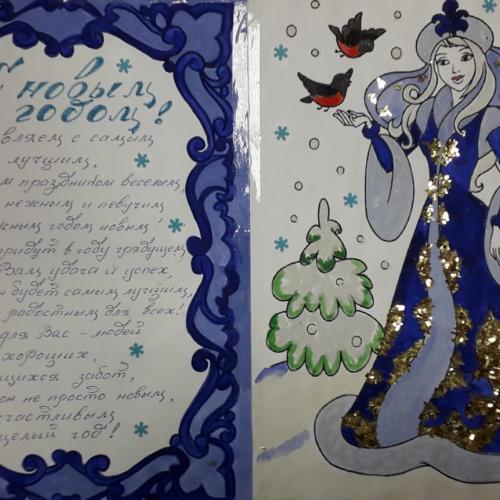 новым
годом!
вляем с самым
лучшим,
м праздником веселым,
нежным и певучим,
жным годом новым!
придут в году грядущем
Вам удача и успех,
н будет самым лучшим,
радостным для всех!
для Вас – людей
хороших,
щихся забот,
он не просто новым,
счастливым
целый год!